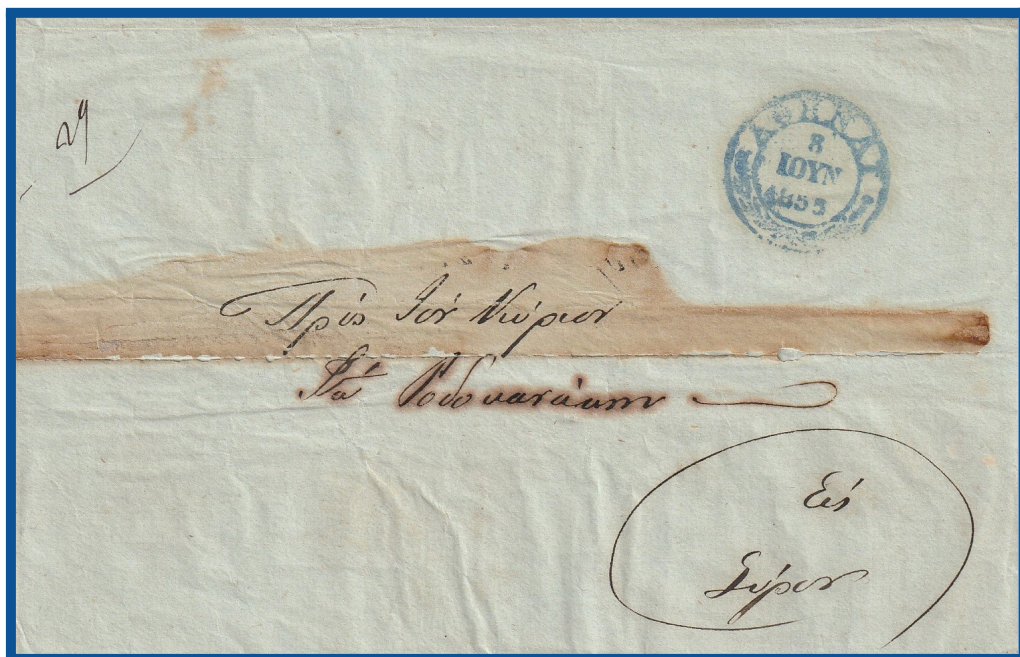 29
ΑΘΗΝΑΙ
8
ΙΟΥΝ
1855
Πρὸς τὸν Κύριον
Ῥοδοκανάκην
Εἰς
Σύρον